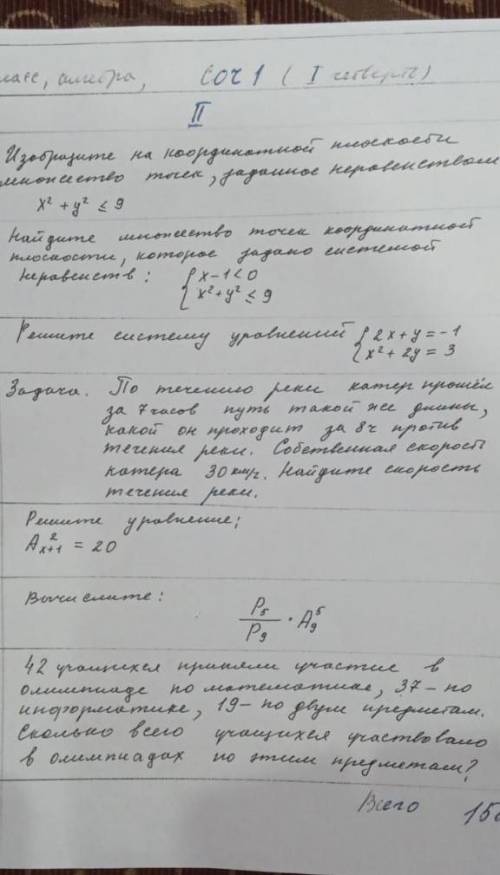 алгебра, СОЧ 1 (I четверть)
II
Изобразите на координатной плоскости
множество точек, заданное неравенством
x² + y² ≤ 9
Найдите множество точек координатной
плоскости, которое задано системой
неравенств: { x-1<0
x²+y² ≤ 9
Решите систему уравнений { 2x+y=-1
x²+2y=3
Задача. По течению реки катер прошёл
за 7 часов путь такой же длины,
какой он проходит за 8ч против
течения реки. Собственная скорость
катера 30 км/ч. Найдите скорость
течения реки.
Решите уравнение:
A²ₓ₊₁ = 20
Вычислите:
P₅/P₉ · A₉⁵
42 учащихся приняли участие в
олимпиаде по математике, 37 - по
информатике, 19 - по двум предметам.
Сколько всего учащихся участвовало
в олимпиадах по этим предметам?
Всего